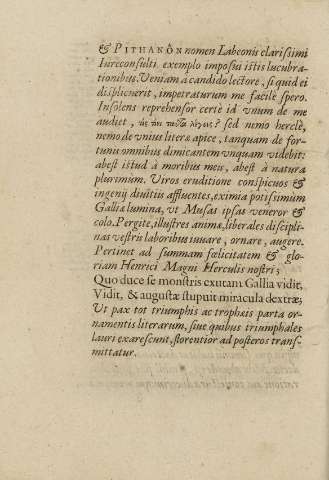 & PITHANῶN nomen Labeonis clarissimi
Iureconsulti exemplo imposui istis lucubra-
tionibus. Veniam à candido lectore, si quid ei
displicuerit, impetraturum me facilè spero.
Insolens reprehensor certè id vnum de me
audiet, sed nemo herclè,
nemo de vnius literæ apice, tanquam de for-
tunis omnibus dimicantem vnquam videbit:
abest istud à moribus meis, abest à natura
plurimum. Viros eruditione conspicuos &
ingenij diuitiis affluentes, eximia potissimum
Galliæ lumina, vt Musas ipsas veneror &
colo. Pergite, illustres animæ, liberales discipli-
nas vestris laboribus iuuare, ornare, augere.
Pertinet ad summam fœlicitatem & glo-
riam Henrici Magni Herculis nostri;
Quo duce se monstris exutam Gallia vidit,
Vidit, & augustæ stupuit miracula dextræ,
Vt pax tot triumphis ac trophæis parta or-
namentis literarum, siue quibus triumphales
lauri exarescunt, florentior ad posteros trans-
mittatur.